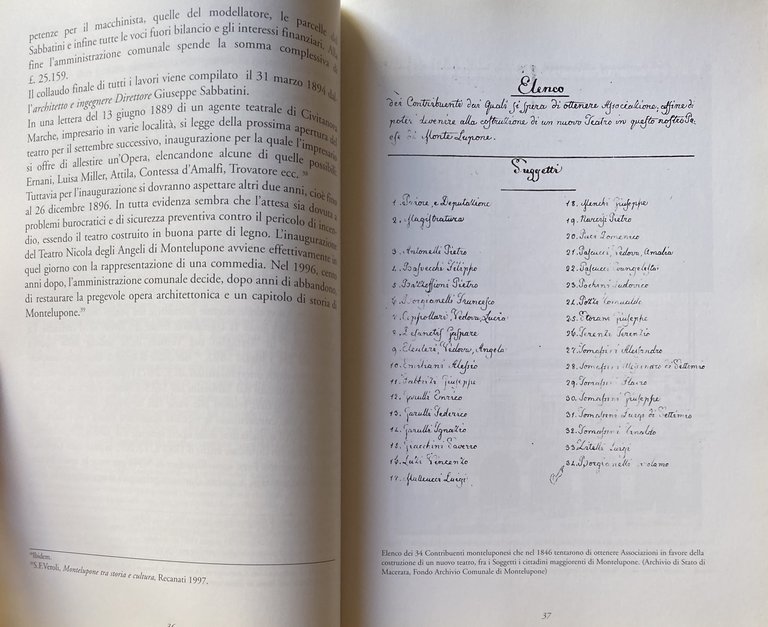 petenze per il macchinista, quelle del modellatore, le parcelle del
Sabbatini e infine tutte le voci fuori bilancio e gli interessi finanziari. Alla
fine l'amministrazione comunale spende la somma complessiva di
£. 25.159.
Il collaudo finale di tutti i lavori viene compilato il 31 marzo 1894 dal-
l'architetto e ingegnere Direttore Giuseppe Sabbatini.
In una lettera del 13 giugno 1889 di un agente teatrale di Civitanova
Marche, impresario in varie località, si legge della prossima apertura del
teatro per il settembre successivo, inaugurazione per la quale l'impresario
si offre di allestire un'Opera, elencandone alcune di quelle possibili:
Ernani, Luisa Miller, Attila, Contessa d'Amalfi, Trovatore ecc. ³⁸
Tuttavia per l'inaugurazione si dovranno aspettare altri due anni, cioè fino
al 26 dicembre 1896. In tutta evidenza sembra che l'attesa sia dovuta a
problemi burocratici e di sicurezza preventiva contro il pericolo di incen-
dio, essendo il teatro costruito in buona parte di legno. L'inaugurazione
del Teatro Nicola degli Angeli di Montelupone avviene effettivamente in
quel giorno con la rappresentazione di una commedia. Nel 1996, cento
anni dopo, l'amministrazione comunale decide, dopo anni di abbandono,
di restaurare la pregevole opera architettonica e un capitolo di storia di
Montelupone.³⁹
³⁸Ibidem.
³⁹S.F.Veroli, Montelupone tra storia e cultura, Recanati 1997.
36
Elenco
dei Contribuenti dai quali si spera di ottenere Associazione, affine di
poter devenire alla costruzione di un nuovo Teatro in questo nostro Pe-
ese di Monte Lupone.
Soggetti
1. Priore, e Deputazione
2. Magistratura
3. Antonelli Pietro
4. Basvecchi Filippo
5. Pietro
6. Borgianelli Francesco
7. Cippollari Vedova Lucia
8. Gaspare
9. Eleuteri Vedova, Angela
10. Emiliani Alessio
11. Fabbrizi Giuseppe
12. Garulli Enrico
13. Garulli Federico
14. Garulli Ignazio
15. Giacchini Saverio
16. Luzi Vincenzo
17. Matteucci Luigi
18. Menchi Giuseppe
19. Narcisi Pietro
20. Pucci Domenico
21. Pascucci, Vedova, Amalia
22. Pascucci Evangelista
23. Pochini Ludovico
24. Romualdo
25. Storani Giuseppe
26. Terenzi Terenzio
27. Tomassini Alessandro
28. Tomassini Alessandro di Settimio
29. Tomassini
30. Tomassini Giuseppe
31. Tomassini Luigi di Settimio
32. Tomassini
33. Luigi
34. Borgianelli
Elenco dei 34 Contribuenti monteluponesi che nel 1846 tentarono di ottenere Associazioni in favore della
costruzione di un nuovo teatro, fra i Soggetti i cittadini maggiorenti di Montelupone. (Archivio di Stato di
Macerata, Fondo Archivio Comunale di Montelupone)
37